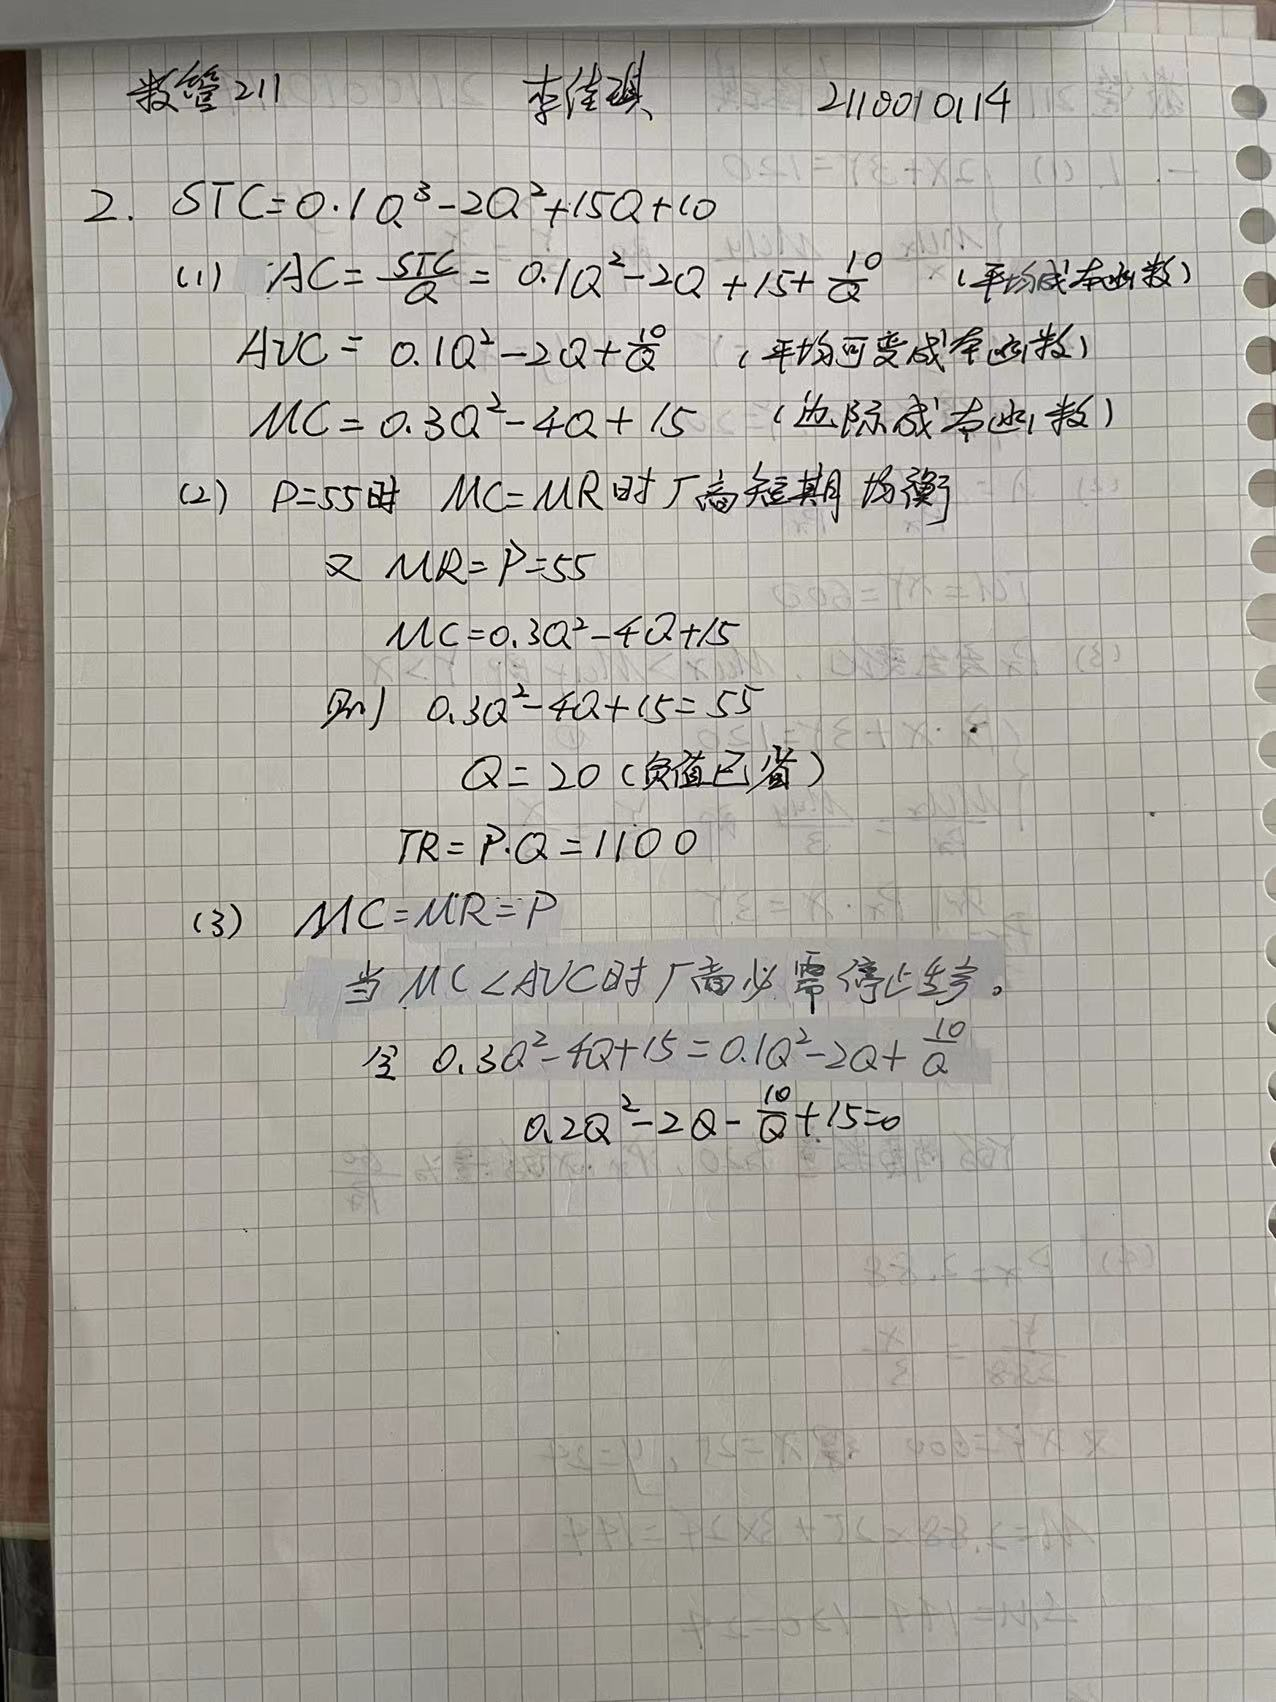 数管211 李佳琪 2110010114
2. STC=0.1Q³-2Q²+15Q+10
(1) AC=STC/Q=0.1Q²-2Q+15+10/Q (平均成本函数)
AVC=0.1Q²-2Q+10/Q (平均可变成本函数)
MC=0.3Q²-4Q+15 (边际成本函数)
(2) P=55时 MC=MR时厂商短期均衡
又 MR=P=55
MC=0.3Q²-4Q+15
则 0.3Q²-4Q+15=55
Q=20(负值已省)
TR=P·Q=1100
(3) MC=MR=P
当MC<AVC时厂商必需停止生产。
令 0.3Q²-4Q+15=0.1Q²-2Q+10/Q
0.2Q²-2Q-10/Q+15=0